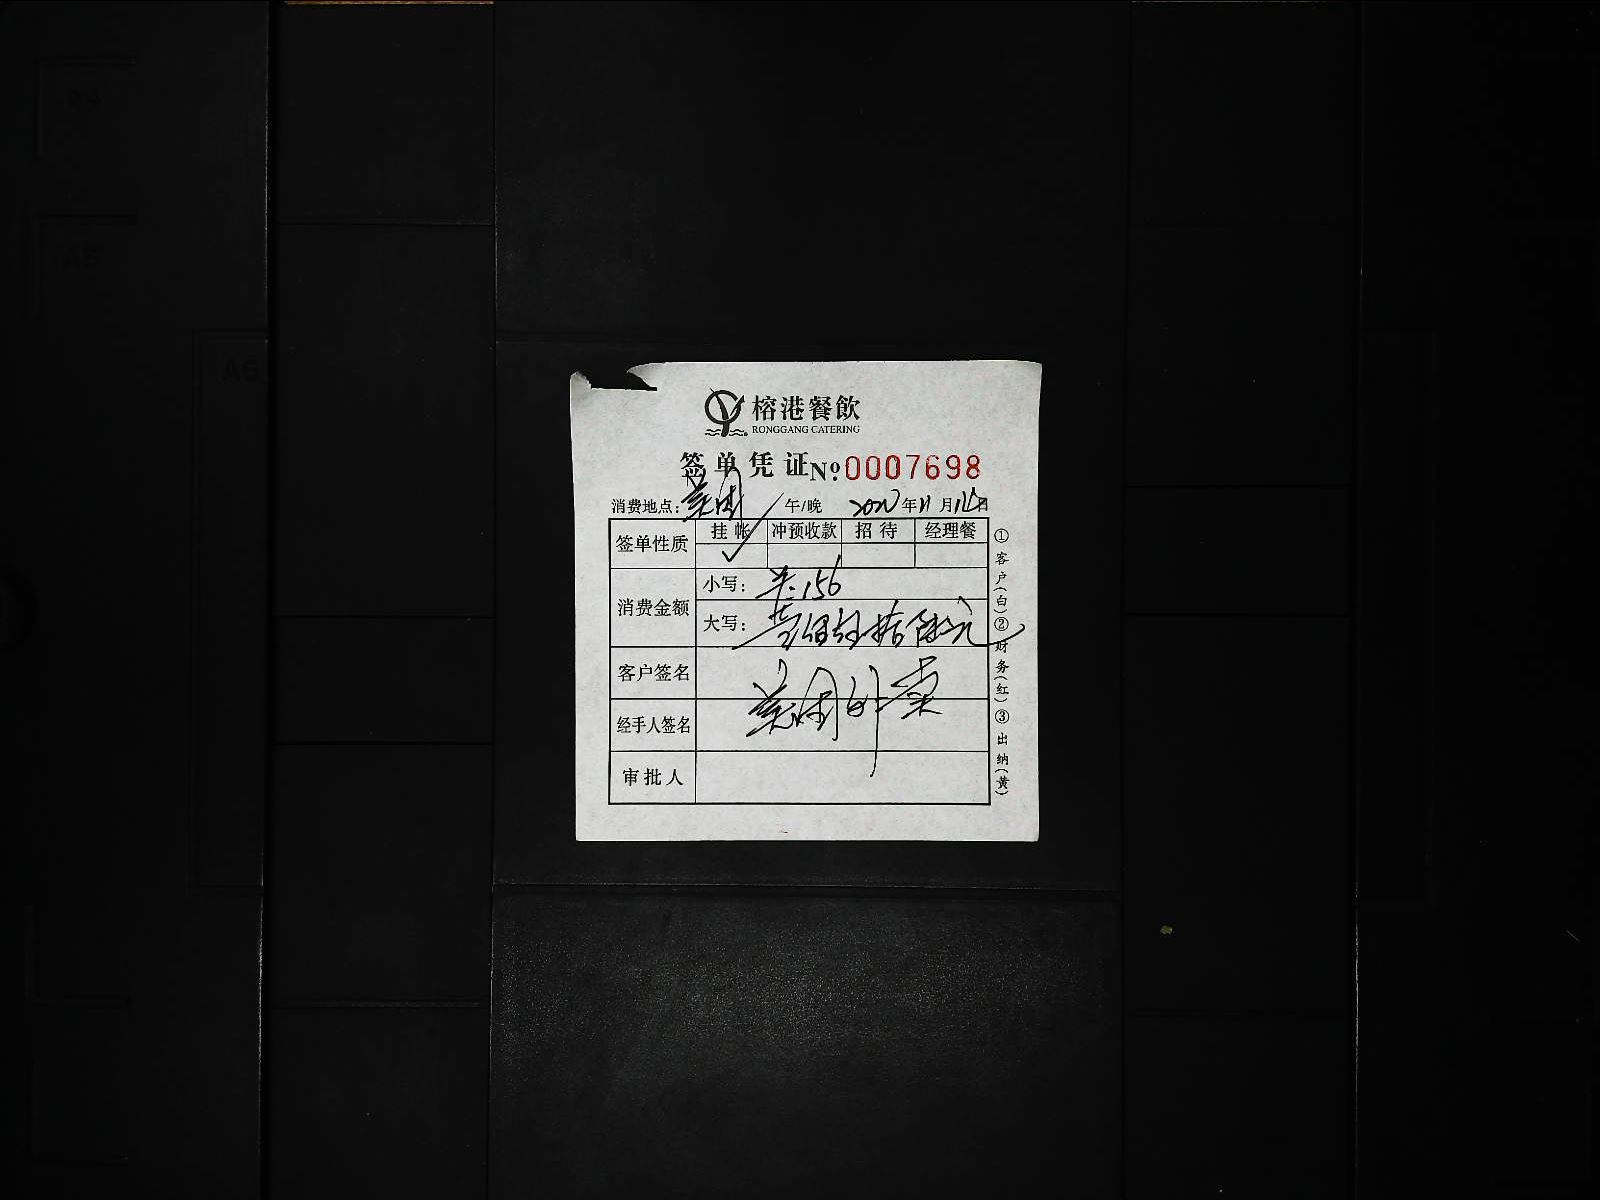 榕港餐飲
RONGGANG CATERING
签单凭证 No 0007698
消费地点: 美团 午/晚 年11月 日
签单性质 挂帐 冲预收款 招待 经理餐
✓
消费金额 小写: 156
大写: 壹佰伍拾陆元
客户签名
美团外卖
经手人签名
审批人
①客户(白)②财务(红)③出纳(黄)
A6
A5